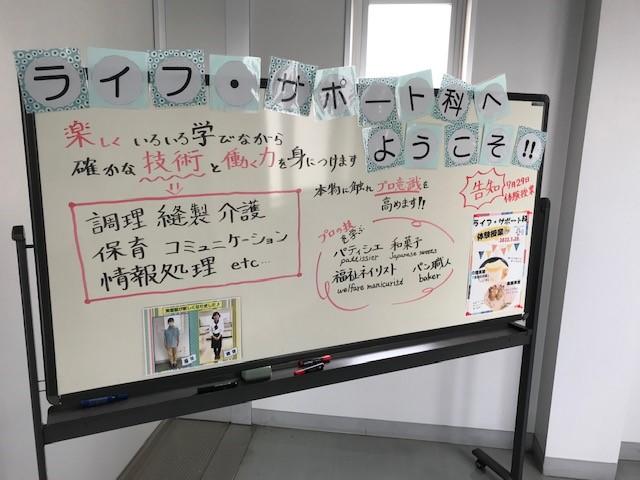 ライフ・サポート科へ
ようこそ!!
楽しく いろいろ学びながら
確かな技術と働く力を身につけます
調理 縫製 介護
保育 コミュニケーション
情報処理 etc…
本物に触れプロ意識を
高めます!!
プロの技
を学ぶ
パティシエ 和菓子
patissier Japanese sweets
福祉ネイリスト パン職人
welfare manicurist baker
告知
9月29日
体験授業
ライフ・サポート科
体験授業